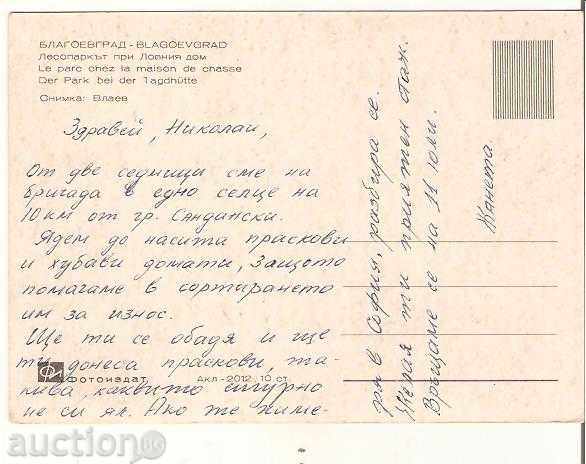 БЛАГОЕВГРАД - BLAGOEVGRAD
Лесопаркът при Ловния дом
Le parc chez la maison de chasse
Der Park bei der Tagdhütte
Снимка: Влаев
Здравей, Николай,
От две седмици сме на
бригада в едно селце на
10 км от гр. Сандански.
Ядем до насита праскови
и хубави домати, защото
помагаме в сортирането
им за износ.
Ще ти се обадя и ще
ти донеса праскови, та-
кива, каквито сигурно
не си ял. Ако те наме-
Фотоиздат
Акл-2012 10 ст
ря в София, разбира се.
Желая ти приятен стаж.
Връщаме се на 11 юли.
Жанета
auction.bg